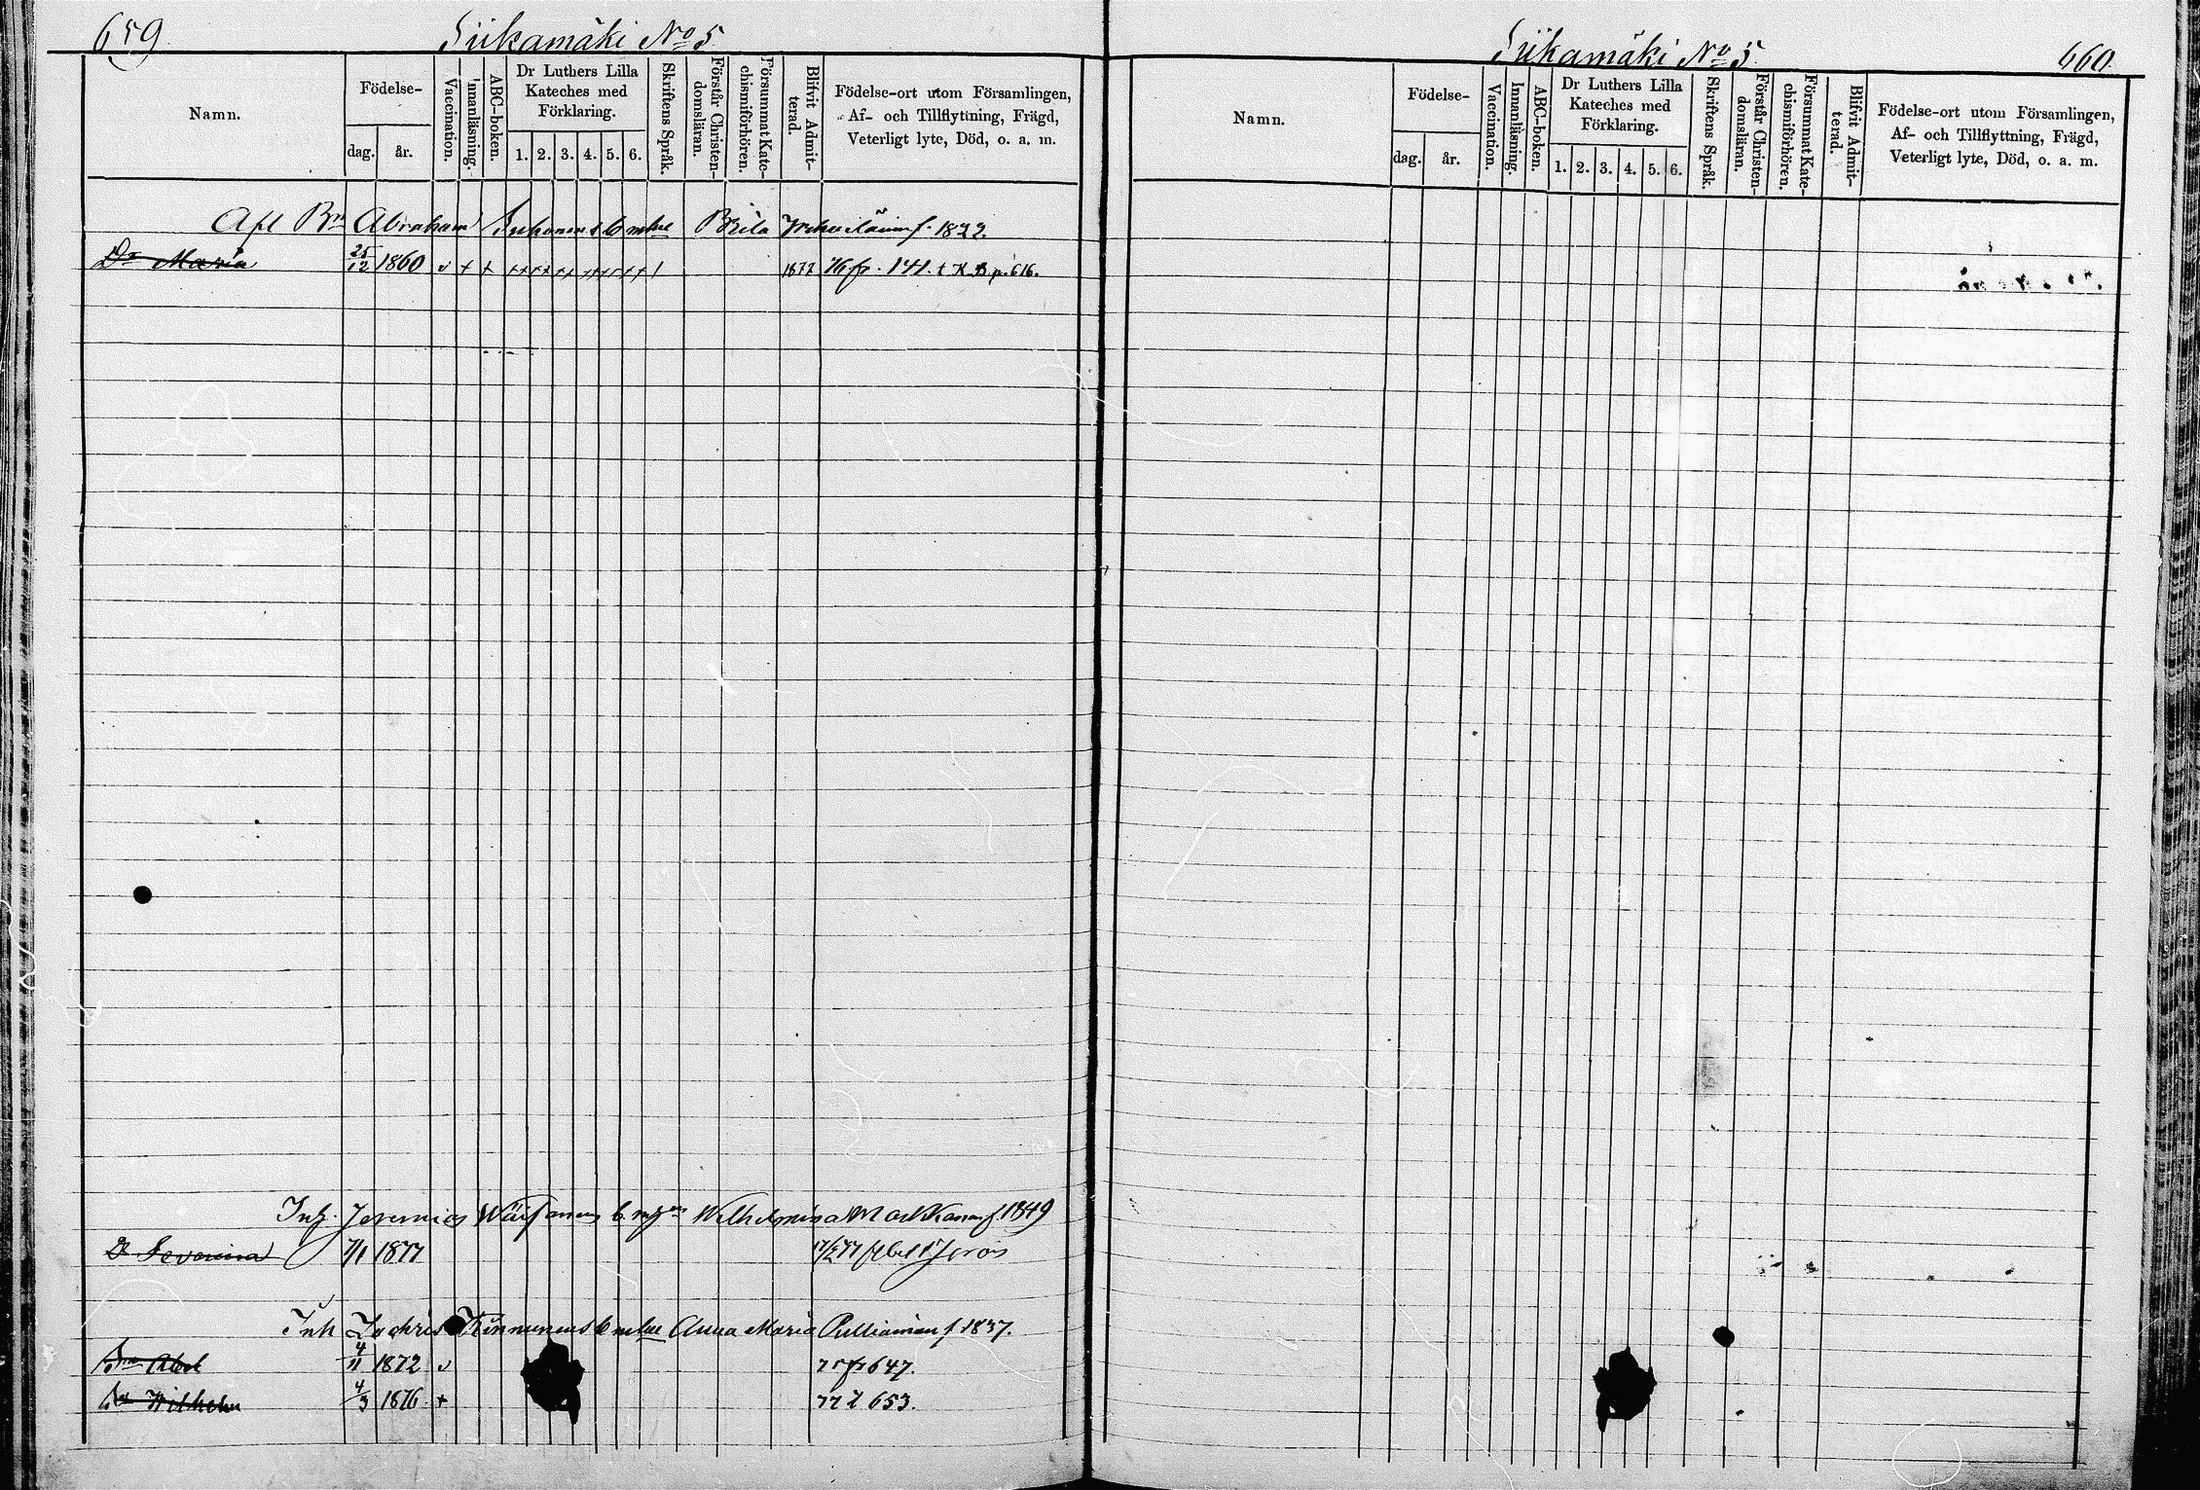 659
Siikamäki No 5
Namn.
Födelse-
dag.
år.
Vaccination.
Innanläsning.
ABC-boken.
Dr Luthers Lilla
Kateches med
Förklaring.
1. 2. 3. 4. 5. 6.
Skriftens Språk.
Förstår Christen-
domsläran.
Försummat Kate-
chismiförhören.
Blifvit Admit-
terad.
Födelse-ort utom Församlingen,
Af- och Tillflyttning, Frägd,
Veterligt lyte, Död, o. a. m.
Abraham Brita f. 1822.
Dr Maria 25/12 1860 v + + 1877 76 fr. 141. t K.B.p. 616.
Inh. Jeremias Wilhelmina f. 1849
D. Severina 7/1 1877
Inh Zachris Kinnunens Anna Maria Pulliainen f 1837.
Sn Abel 4/11 1872 v 75 fr 647.
Sn Wilhelm 4/3 1876 + 77 t 653.
Siikamäki No 5
660
Namn.
Födelse-
dag.
år.
Vaccination.
Innanläsning.
ABC-boken.
Dr Luthers Lilla
Kateches med
Förklaring.
1. 2. 3. 4. 5. 6.
Skriftens Språk.
Förstår Christen-
domsläran.
Försummat Kate-
chismiförhören.
Blifvit Admit-
terad.
Födelse-ort utom Församlingen,
Af- och Tillflyttning, Frägd,
Veterligt lyte, Död, o. a. m.